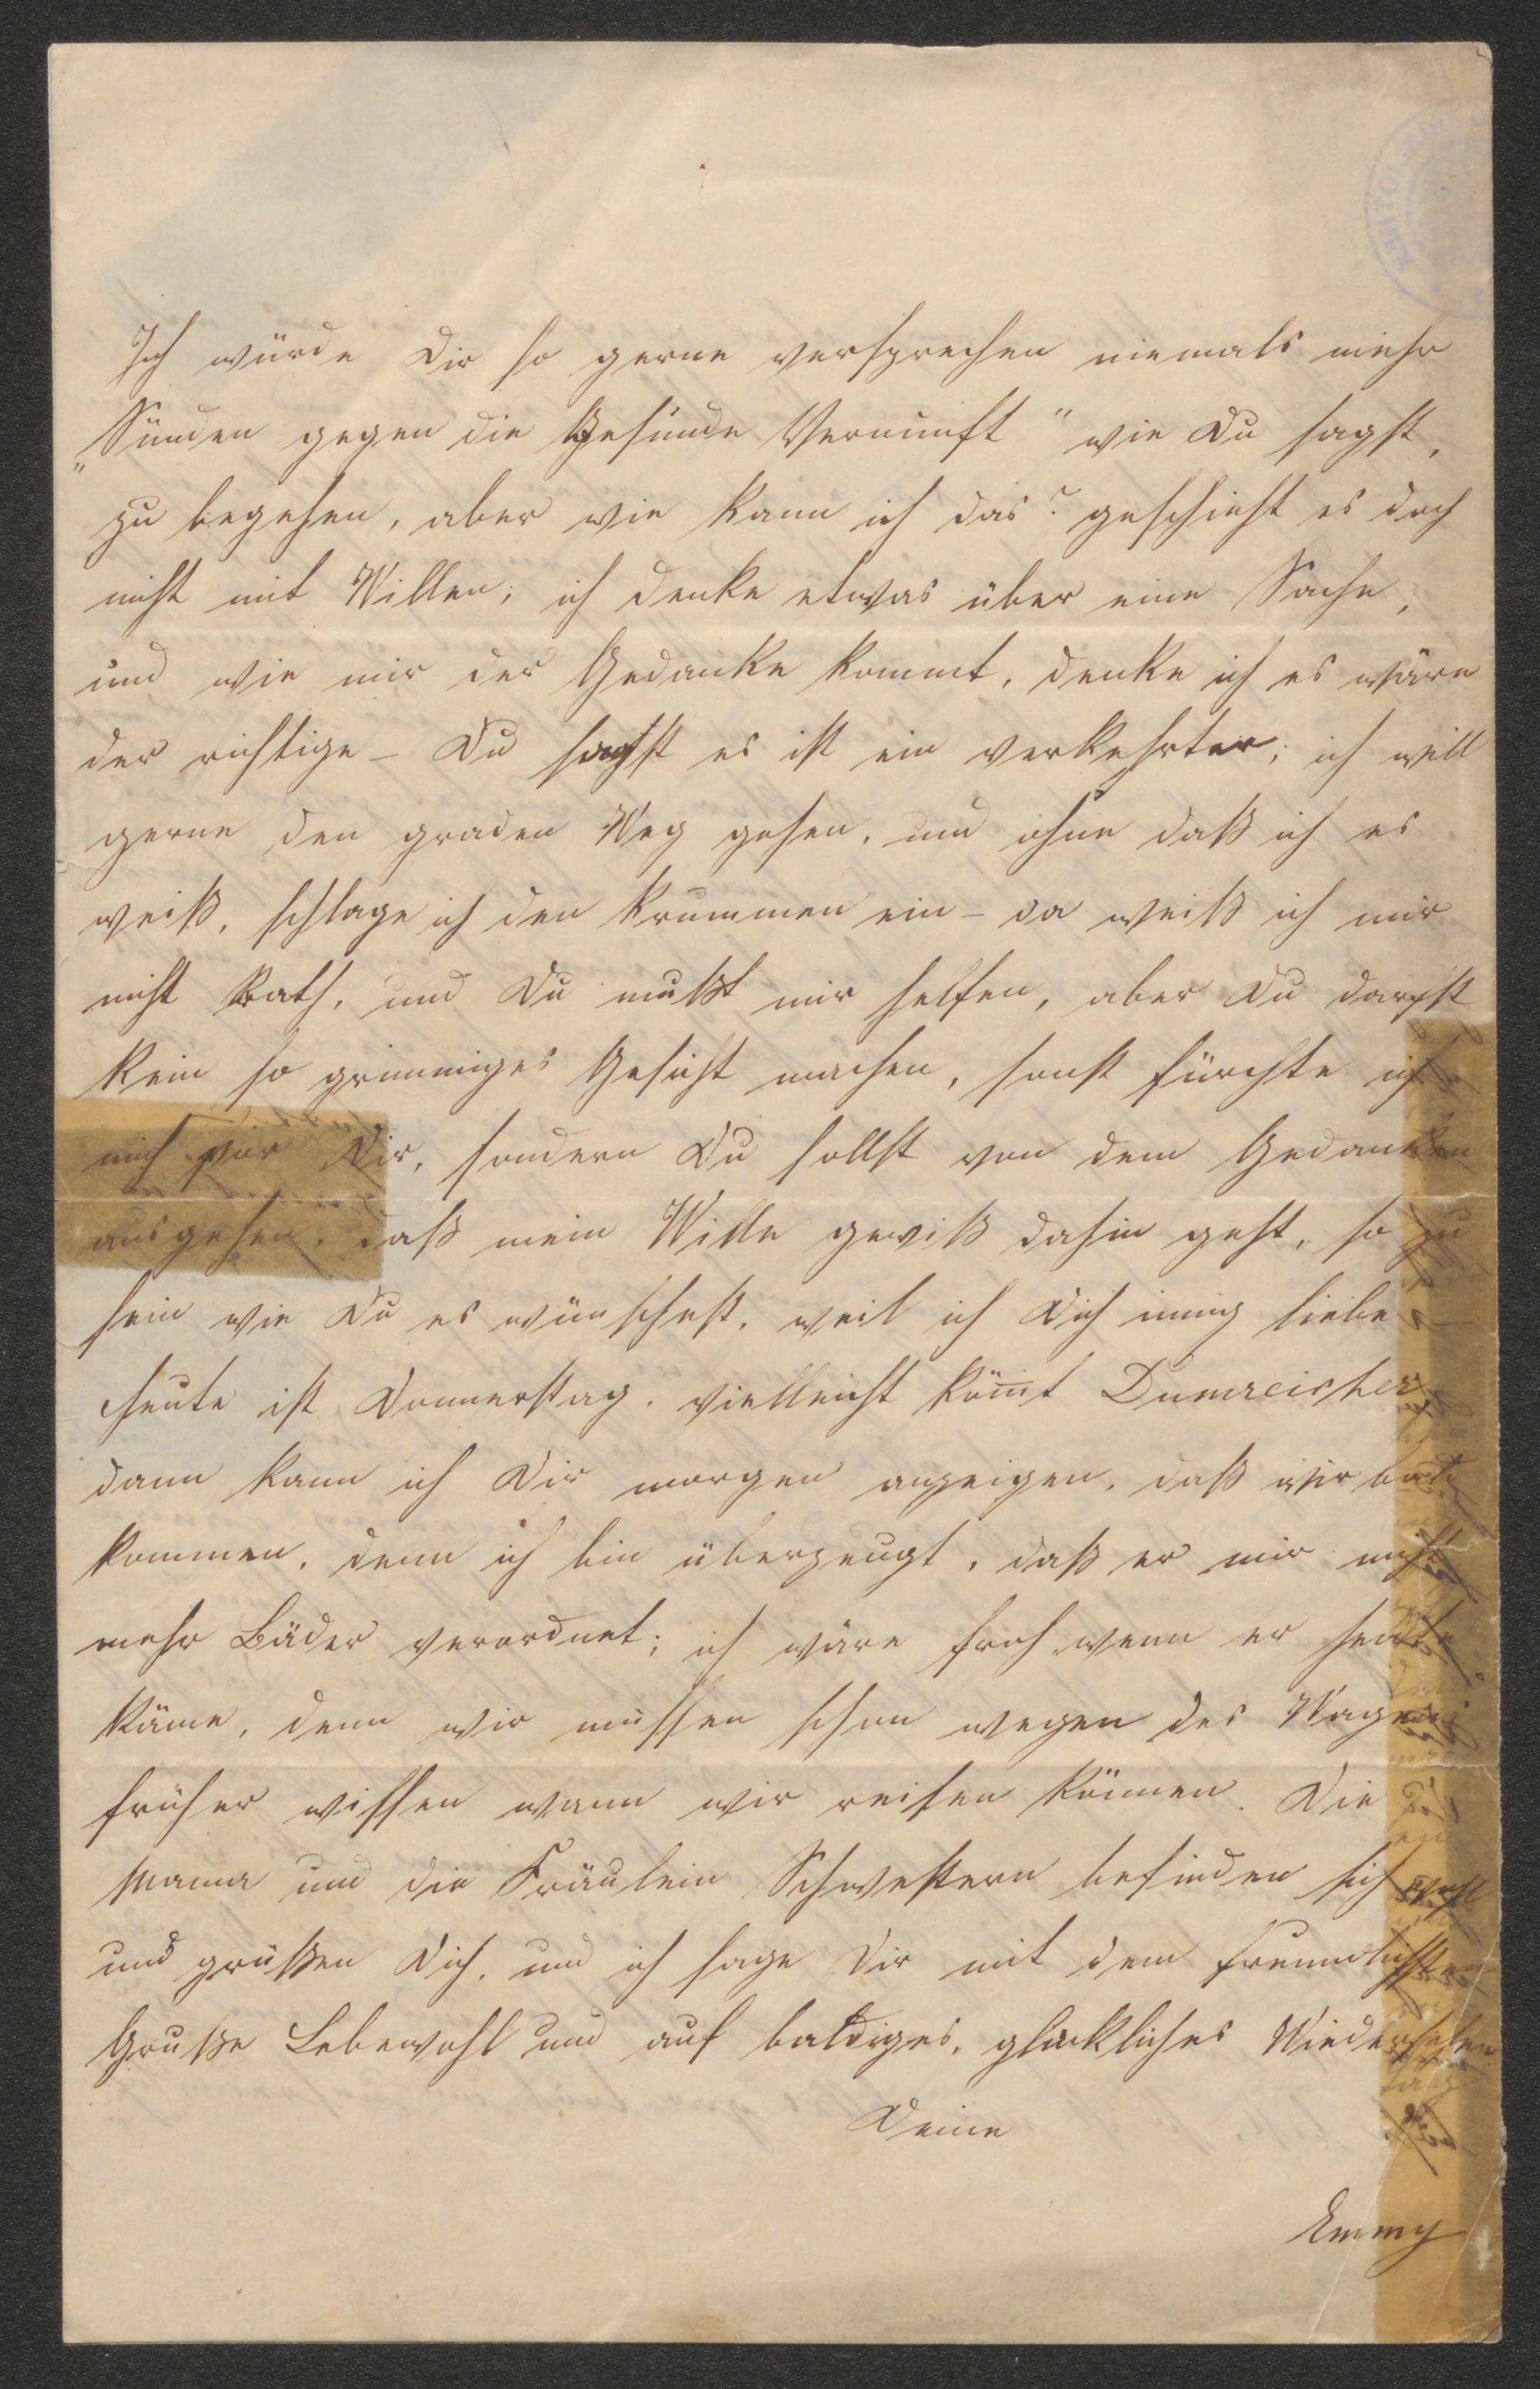 Ich würde Dir so gerne versprechen niemals mehr
„Sünden gegen die Gesunde Vernunft" wie Du sagst,
zu begehen, aber wie kann ich das? geschieht es doch
nicht mit Willen; ich denke etwas über eine Sache,
und wie mir der Gedanke kommt, denke ich es wäre
der richtige – Du sagst es ist ein verkehrter; ich will
gerne den graden Weg gehen, und ohne daß ich es
weiß, schlage ich den krummen ein – da weiß ich mir
nicht Rath, und Du mußt mir helfen, aber Du darfst
kein so grimmiges Gesicht machen, sonst fürchte ich
mich vor Dir, sondern Du sollst von dem Gedanken
ausgehen, daß mein Wille gewiß dahin geht, so zu
sein wie Du es wünschest, weil ich Dich innig liebe
heute ist Donnerstag. vielleicht kömt Dumreicher,
dann kann ich Dir morgen anzeigen, daß wir bald
kommen, denn ich bin überzeugt, daß er mir nicht
mehr Bäder verordnet; ich wäre froh wenn er heute
käme, denn wir müssen schon wegen des Wagens
früher wissen wann wir reisen können. Die
Mama und die Fräulein Schwestern befinden sich wohl
und grüßen Dich, und ich sage Dir mit dem freundlichsten
Gruße Lebewohl und auf baldiges, glückliches Wiedersehen
Deine
Emmy